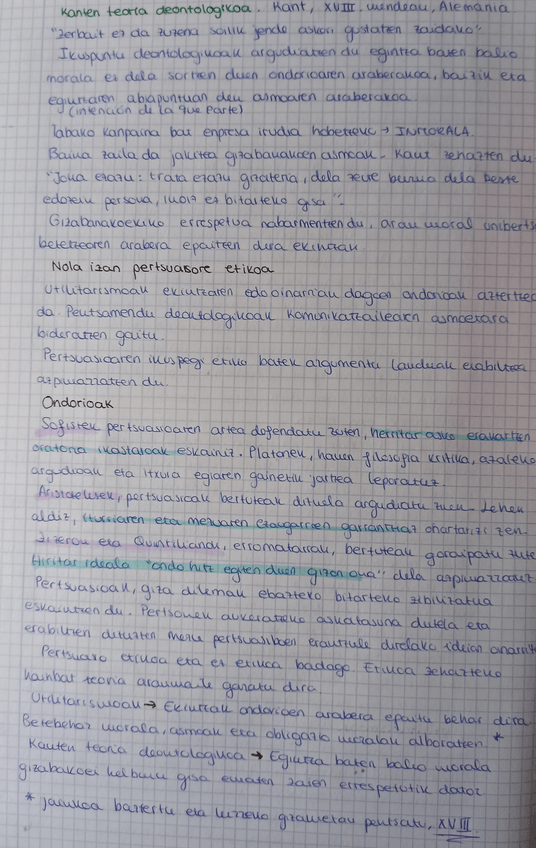 Kanten teoria deontologikoa. Kant, XVIII. mendeau, Alemania
"Zerbait ez da zuzena soilik jende askori gustatzen zaidako"
Ikuspuntu deontologikoak argudiatzen du egintza baten balio
morala ez dela sortzen duen ondorioaren araberakoa, baizik eta
egiuriaren abiapuntuan deu asmoaren araberakoa.
(intención de la que parte)
Tabako kanpaina bat enpresa irudia hobetzeuc → INMORALA.
Baina zaila da jakitea gizabanakoen asmoak. Kant zehazten du
"Joka ezazu: trata ezazu gizateria, dela zeure burua dela beste
edozein persona, inoiz ez bitarteko gisa".
Gizabanakoekiko errespetua nabarmentzen du, arau moral uniberts
beteetzearen arabera epaitzen dira ekintzak
Nola izan pertsuasore etikoa
Utilitarismoak ekintzaren edo oinarriau dagoen ondorioak aztertzeo
da. Peutsamendu deontologikoak komunikatzailearen asmoetara
bideratzen gaitu.
Pertsuasioaren ikuspegi etiko batek argumentu landuak erabiltzea
azpimarratzen du.
Ondorioak
Sofistek pertsuasioaren artea defendatu zuten, herritar asko erakartzen
oratoria ikastaroak eskainiz. Platonek, hauen filosofia kritika, azaleko
argudioak eta itxura egiaren gainetik jartzea leporatuz.
Aristotelesek, pertsuasioak bertuteak dituela argudiatu zuen. Lehen
aldiz, iturriaren eta mezuaren ezaugarrien garrantziaz ohartarazi zen.
Zizerou eta Quintiliandu, erromatarrak, bertuteak goraipatu zute
Hiritar ideala "ondo hitz egiten duen gizon ona" dela azpimarratuz
Pertsuasioak, giza dilemak ebazteko bitarteko zibilizatua
eskaintzen du. Pertsonek aukeratzeko askatasuna dutela eta
erabiltzen dituzten mezu pertsuasiboen erantzule direlako ideian oinarrit
Pertsuasio etikoa eta ez etikoa badago. Etikoa zehazteko
hainbat teoria arauemaile garatu dira.
Utilitarismoak → Ekintzak ondorioen arabera epaitu behar dira.
Betebehar morala, asmoak eta obligazio moralak alboratzen. *
Kanten teoria deontologikoa → Egintza baten balio morala
gizabakoei helburu gisa ematen zaien errespetutik dator
* jasnkoa baztertu eta kuzzeko gizawerau peutsatu, XVIII.